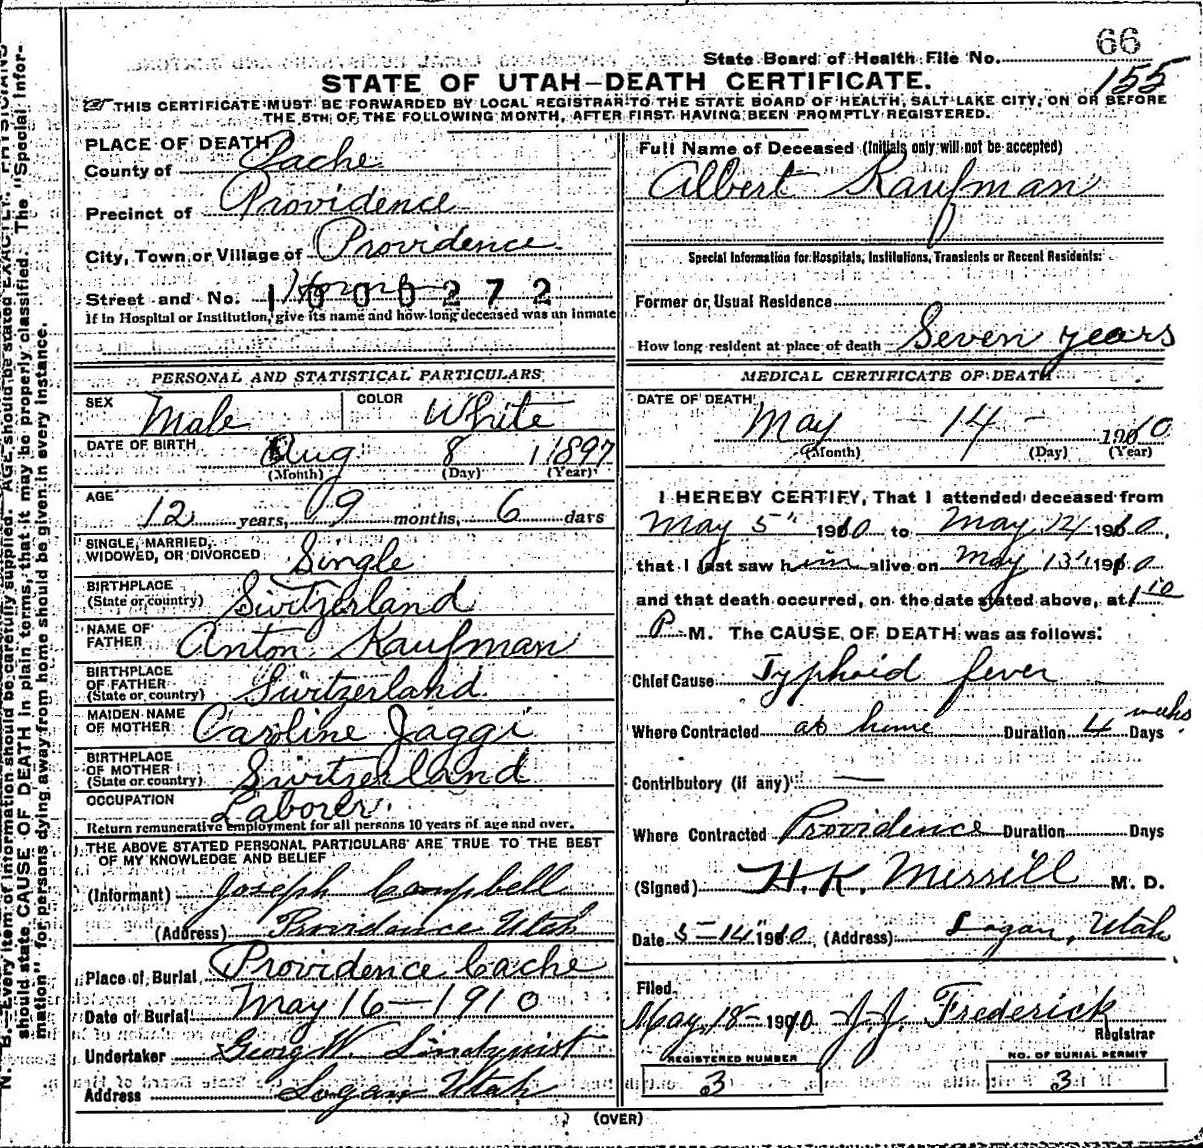 66
State Board of Health File No. 155
STATE OF UTAH—DEATH CERTIFICATE.
THIS CERTIFICATE MUST BE FORWARDED BY LOCAL REGISTRAR TO THE STATE BOARD OF HEALTH, SALT LAKE CITY, ON OR BEFORE
THE 5TH OF THE FOLLOWING MONTH, AFTER FIRST HAVING BEEN PROMPTLY REGISTERED.
PLACE OF DEATH
County of Cache
Precinct of Providence
City, Town or Village of Providence
Street and No. Home 1000272
If in Hospital or Institution, give its name and how long deceased was an inmate
PERSONAL AND STATISTICAL PARTICULARS
SEX Male COLOR White
DATE OF BIRTH Aug 8 1897
(Month) (Day) (Year)
AGE 12 years, 9 months, 6 days
SINGLE, MARRIED, WIDOWED, OR DIVORCED Single
BIRTHPLACE (State or country) Switzerland
NAME OF FATHER Anton Kaufman
BIRTHPLACE OF FATHER (State or country) Switzerland
MAIDEN NAME OF MOTHER Caroline Jaggi
BIRTHPLACE OF MOTHER (State or country) Switzerland
OCCUPATION Laborer.
Return remunerative employment for all persons 10 years of age and over.
THE ABOVE STATED PERSONAL PARTICULARS ARE TRUE TO THE BEST
OF MY KNOWLEDGE AND BELIEF
(Informant) Joseph Campbell
(Address) Providence Utah
Place of Burial Providence Cache
Date of Burial May 16—1910
Undertaker Georg W. Lindquist
Address Logan Utah
Full Name of Deceased (Initials only will not be accepted)
Albert Kaufman
Special Information for Hospitals, Institutions, Transients or Recent Residents:
Former or Usual Residence
How long resident at place of death Seven years
MEDICAL CERTIFICATE OF DEATH
DATE OF DEATH
May - 14 - 1910
(Month) (Day) (Year)
I HEREBY CERTIFY, That I attended deceased from
May 5" 1910 to May 14 1910,
that I last saw him alive on May 13" 1910
and that death occurred, on the date stated above, at 1 10
P M. The CAUSE OF DEATH was as follows:
Chief Cause Typhoid fever
Where Contracted at home Duration 4 weeks Days
Contributory (if any) —
Where Contracted Providence Duration Days
(Signed) H. K. Merrill M. D.
Date 5-14" 1910 (Address) Logan, Utah
Filed.
May 18- 1910 J. J. Frederick
Registrar
REGISTERED NUMBER
3
NO. OF BURIAL PERMIT
3
(OVER)
N. B.—Every item of information should be carefully supplied. AGE should be stated EXACTLY. PHYSICIANS
should state CAUSE OF DEATH in plain terms, that it may be properly classified. The "Special Infor-
mation" for persons dying away from home should be given in every instance.